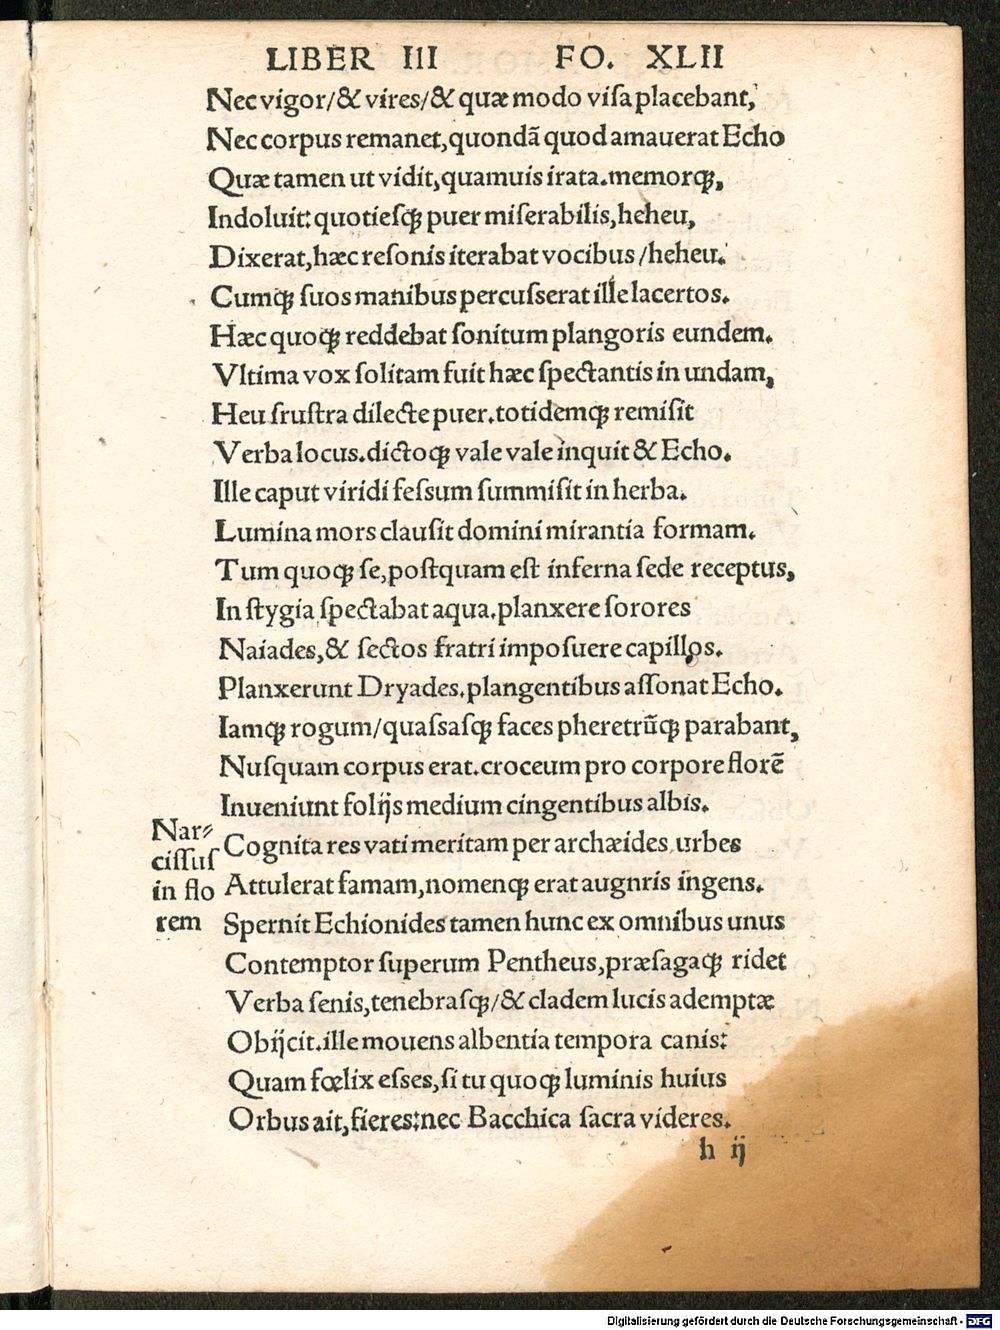 LIBER III FO. XLII
Nec vigor/& vires/& quæ modo viſa placebant,
Nec corpus remanet, quondã quod amauerat Echo
Quæ tamen ut vidit, quamuis irata. memorqꝫ,
Indoluit: quotieſqꝫ puer miſerabilis, heheu,
Dixerat, hæc reſonis iterabat vocibus /heheu.
Cumqꝫ ſuos manibus percuſſerat ille lacertos.
Hæc quoqꝫ reddebat ſonitum plangoris eundem.
Vltima vox ſolitam fuit hæc ſpectantis in undam,
Heu fruſtra dilecte puer. totidemqꝫ remiſit
Verba locus. dictoqꝫ vale vale inquit & Echo.
Ille caput viridi feſſum ſummiſit in herba.
Lumina mors clauſit domini mirantia formam.
Tum quoqꝫ ſe, poſtquam eſt inferna ſede receptus,
In ſtygia ſpectabat aqua. planxere ſorores
Naiades, & ſectos fratri impoſuere capillos.
Planxerunt Dryades. plangentibus aſſonat Echo.
Iamqꝫ rogum/quaſſaſqꝫ faces pheretrũqꝫ parabant,
Nuſquam corpus erat. croceum pro corpore florẽ
Inueniunt folijs medium cingentibus albis.
Nar⸗
ciſſuſ
in flo
rem
Cognita res vati meritam per archæides urbes
Attulerat famam, nomenqꝫ erat augnris ingens.
Spernit Echionides tamen hunc ex omnibus unus
Contemptor ſuperum Pentheus, præſagaqꝫ ridet
Verba ſenis, tenebraſqꝫ/& cladem lucis ademptæ
Obijcit. ille mouens albentia tempora canis:
Quam fœlix eſſes, ſi tu quoqꝫ luminis huius
Orbus ait, fieres: nec Bacchica ſacra videres.
h ij
Digitalisierung gefördert durch die Deutsche Forschungsgemeinschaft - DFG